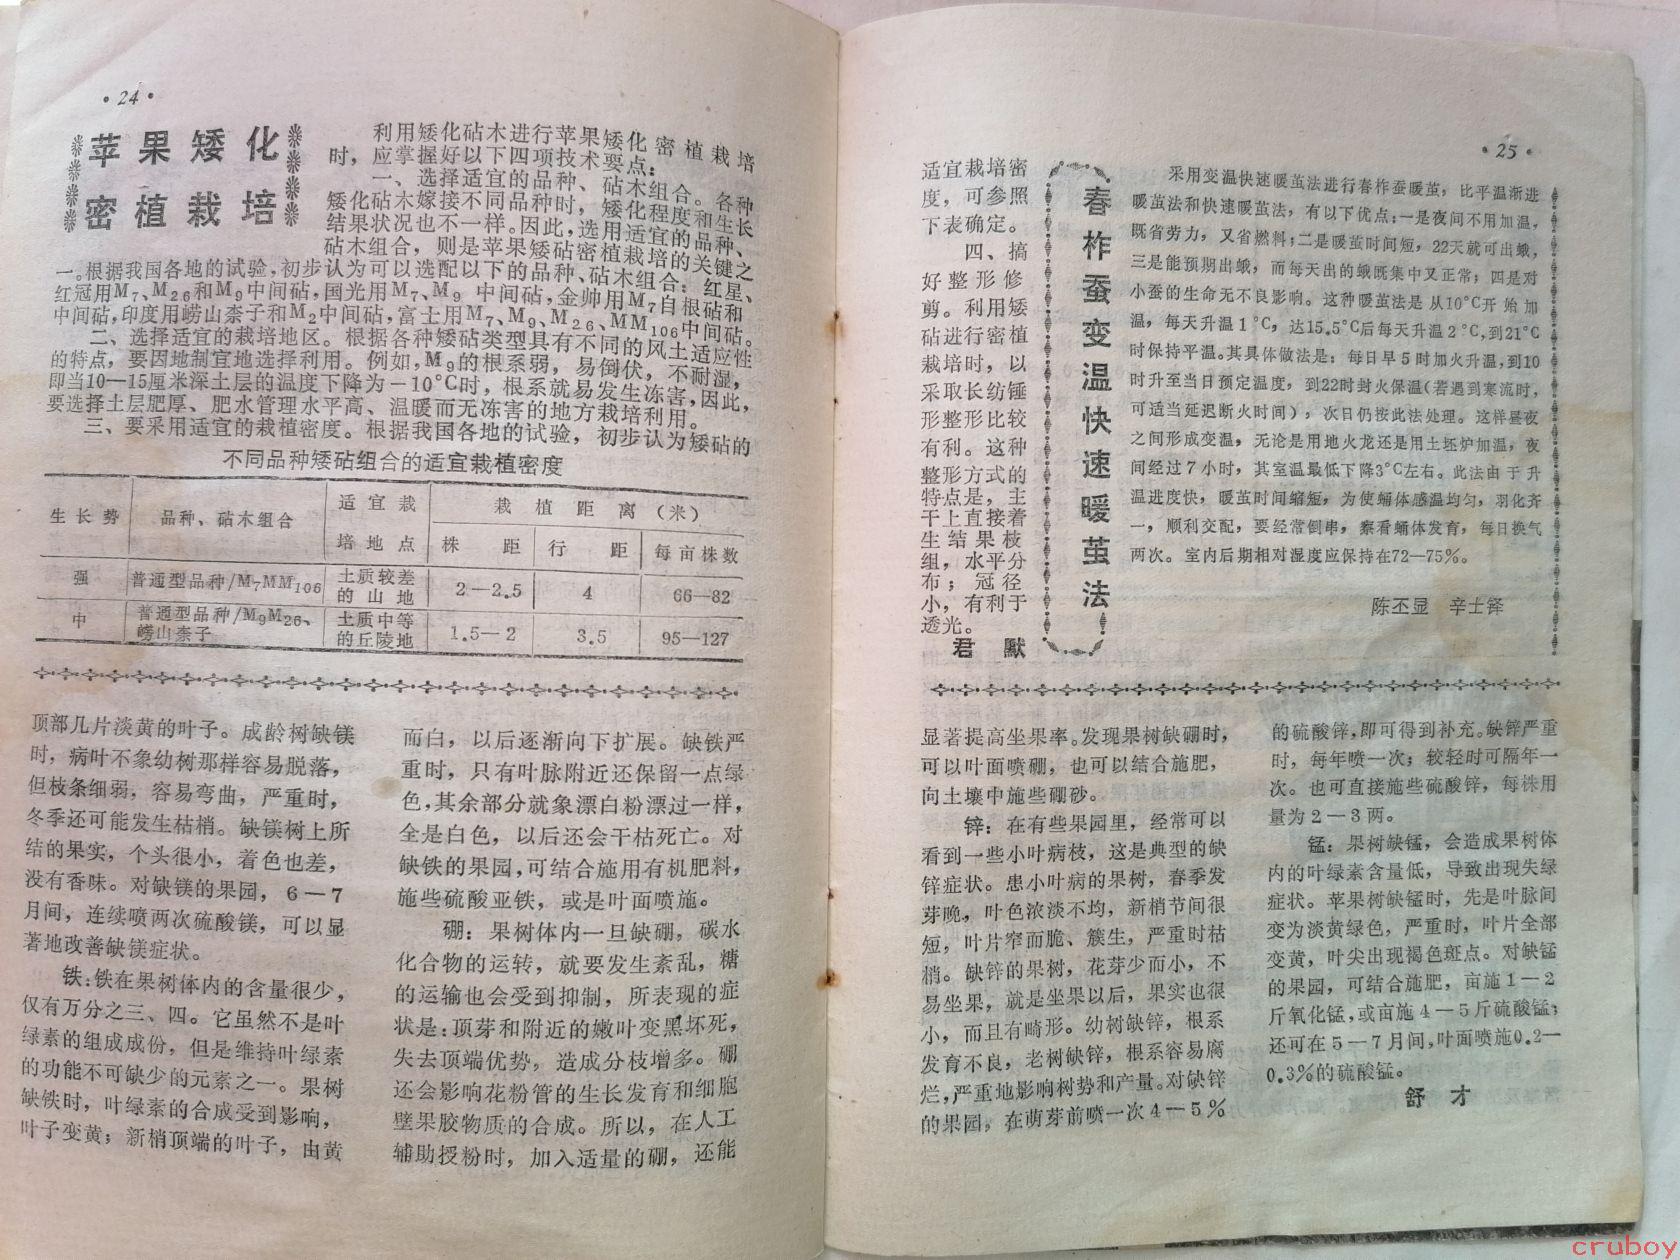 ·24·
苹果矮化
密植栽培
利用矮化砧木进行苹果矮化密植栽培
时，应掌握好以下四项技术要点：
一、选择适宜的品种、砧木组合。各种
矮化砧木嫁接不同品种时，矮化程度和生长
结果状况也不一样。因此，选用适宜的品种、
砧木组合，则是苹果矮砧密植栽培的关键之
一。根据我国各地的试验，初步认为可以选配以下的品种、砧木组合：红星、
红冠用M₇、M₂₆和M₉中间砧，国光用M₇、M₉中间砧，金帅用M₇自根砧和
中间砧，印度用崂山柰子和M₂中间砧，富士用M₇、M₉、M₂₆、MM₁₀₆中间砧。
二、选择适宜的栽培地区。根据各种矮砧类型具有不同的风土适应性
的特点，要因地制宜地选择利用。例如，M₉的根系弱，易倒伏，不耐湿，
即当10—15厘米深土层的温度下降为－10℃时，根系就易发生冻害，因此，
要选择土层肥厚、肥水管理水平高、温暖而无冻害的地方栽培利用。
三、要采用适宜的栽植密度。根据我国各地的试验，初步认为矮砧的
不同品种矮砧组合的适宜栽植密度
生长势 品种、砧木组合 适宜栽培地点 栽植距离（米）
株距 行距 每亩株数
强 普通型品种/M₇MM₁₀₆ 土质较差的山地 2—2.5 4 66—82
中 普通型品种/M₉M₂₆、崂山柰子 土质中等的丘陵地 1.5—2 3.5 95—127
顶部几片淡黄的叶子。成龄树缺镁
时，病叶不象幼树那样容易脱落，
但枝条细弱，容易弯曲，严重时，
冬季还可能发生枯梢。缺镁树上所
结的果实，个头很小，着色也差，
没有香味。对缺镁的果园，6—7
月间，连续喷两次硫酸镁，可以显
著地改善缺镁症状。
铁：铁在果树体内的含量很少，
仅有万分之三、四。它虽然不是叶
绿素的组成成份，但是维持叶绿素
的功能不可缺少的元素之一。果树
缺铁时，叶绿素的合成受到影响，
叶子变黄；新梢顶端的叶子，由黄
而白，以后逐渐向下扩展。缺铁严
重时，只有叶脉附近还保留一点绿
色，其余部分就象漂白粉漂过一样，
全是白色，以后还会干枯死亡。对
缺铁的果园，可结合施用有机肥料，
施些硫酸亚铁，或是叶面喷施。
硼：果树体内一旦缺硼，碳水
化合物的运转，就要发生紊乱，糖
的运输也会受到抑制，所表现的症
状是：顶芽和附近的嫩叶变黑坏死，
失去顶端优势，造成分枝增多。硼
还会影响花粉管的生长发育和细胞
壁果胶物质的合成。所以，在人工
辅助授粉时，加入适量的硼，还能
·25·
适宜栽培密
度，可参照
下表确定。
四、搞
好整形修
剪。利用矮
砧进行密植
栽培时，以
采取长纺锤
形整形比较
有利。这种
整形方式的
特点是，主
干上直接着
生结果枝
组，水平分
布；冠径
小，有利于
透光。
君默
春柞蚕变温快速暖茧法
采用变温快速暖茧法进行春柞蚕暖茧，比平温渐进
暖茧法和快速暖茧法，有以下优点：一是夜间不用加温，
既省劳力，又省燃料；二是暖茧时间短，22天就可出蛾，
三是能预期出蛾，而每天出的蛾既集中又正常；四是对
小蚕的生命无不良影响。这种暖茧法是从10℃开始加
温，每天升温1℃，达15.5℃后每天升温2℃，到21℃
时保持平温。其具体做法是：每日早5时加火升温，到10
时升至当日预定温度，到22时封火保温（若遇到寒流时，
可适当延迟断火时间），次日仍按此法处理。这样昼夜
之间形成变温，无论是用地火龙还是用土坯炉加温，夜
间经过7小时，其室温最低下降3℃左右。此法由于升
温进度快，暖茧时间缩短，为使蛹体感温均匀，羽化齐
一，顺利交配，要经常倒串，察看蛹体发育，每日换气
两次。室内后期相对湿度应保持在72—75%。
陈丕显 辛士铎
显著提高坐果率。发现果树缺硼时，
可以叶面喷硼，也可以结合施肥，
向土壤中施些硼砂。
锌：在有些果园里，经常可以
看到一些小叶病枝，这是典型的缺
锌症状。患小叶病的果树，春季发
芽晚，叶色浓淡不均，新梢节间很
短，叶片窄而脆、簇生，严重时枯
梢。缺锌的果树，花芽少而小，不
易坐果，就是坐果以后，果实也很
小，而且有畸形。幼树缺锌，根系
发育不良，老树缺锌，根系容易腐
烂，严重地影响树势和产量。对缺锌
的果园，在萌芽前喷一次4—5%
的硫酸锌，即可得到补充。缺锌严重
时，每年喷一次；较轻时可隔年一
次。也可直接施些硫酸锌，每株用
量为2—3两。
锰：果树缺锰，会造成果树体
内的叶绿素含量低，导致出现失绿
症状。苹果树缺锰时，先是叶脉间
变为淡黄绿色，严重时，叶片全部
变黄，叶尖出现褐色斑点。对缺锰
的果园，可结合施肥，亩施1—2
斤氧化锰，或亩施4—5斤硫酸锰；
还可在5—7月间，叶面喷施0.2—
0.3%的硫酸锰。
舒才
cruboy